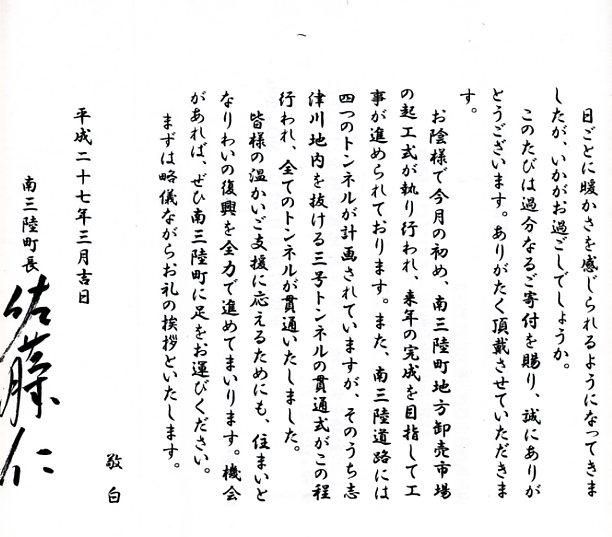 日ごとに暖かさを感じられるようになってきま
したが、いかがお過ごしでしょうか。
このたびは過分なるご寄付を賜り、誠にありが
とうございます。ありがたく頂戴させていただきま
す。
お陰様で今月の初め、南三陸町地方卸売市場
の起工式が執り行われ、来年の完成を目指して工
事が進められております。また、南三陸道路には
四つのトンネルが計画されていますが、そのうち志
津川地内を抜ける三号トンネルの貫通式がこの程
行われ、全てのトンネルが貫通いたしました。
皆様の温かいご支援に応えるためにも、住まいと
なりわいの復興を全力で進めてまいります。機会
があれば、ぜひ南三陸町に足をお運びください。
まずは略儀ながらお礼の挨拶といたします。
敬白
平成二十七年三月吉日
南三陸町長
佐藤仁